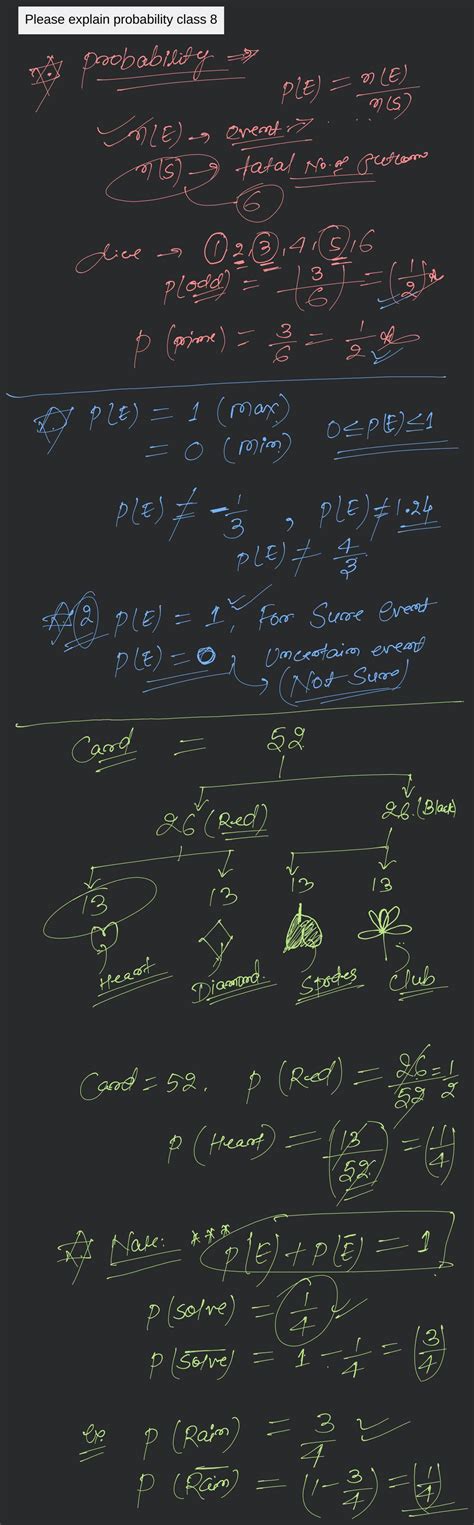 Please explain probability class 8
probability ⇒
P(E) = n(E)/n(S)
n(E) → event →
n(S) → total No. of outcom
6
dice → 1, 2, 3, 4, 5, 6
P(odd) = (3/6) = (1/2)
P(prime) = 3/6 = 1/2
P(E) = 1 (max)
= 0 (min)
0≤P(E)≤1
P(E) ≠ -1/3 , P(E) ≠ 1.24
P(E) ≠ 4/3
(2) P(E) = 1, For Sure event
P(E) = 0, Uncertain event
(Not Sure)
Card = 52
26 (Red) 26 (Black)
13 13 13 13
Heart Diamond. Spades Club
Card = 52. P(Red) = 26/52 = 1/2
P(Heart) = (13/52) = (1/4)
Note: *** P(E) + P(E̅) = 1
P(solve) = 1/4
P(S̅o̅l̅v̅e̅) = 1 - 1/4 = (3/4)
Ex. P(Rain) = 3/4
P(R̅a̅i̅n̅) = (1 - 3/4) = (1/4)